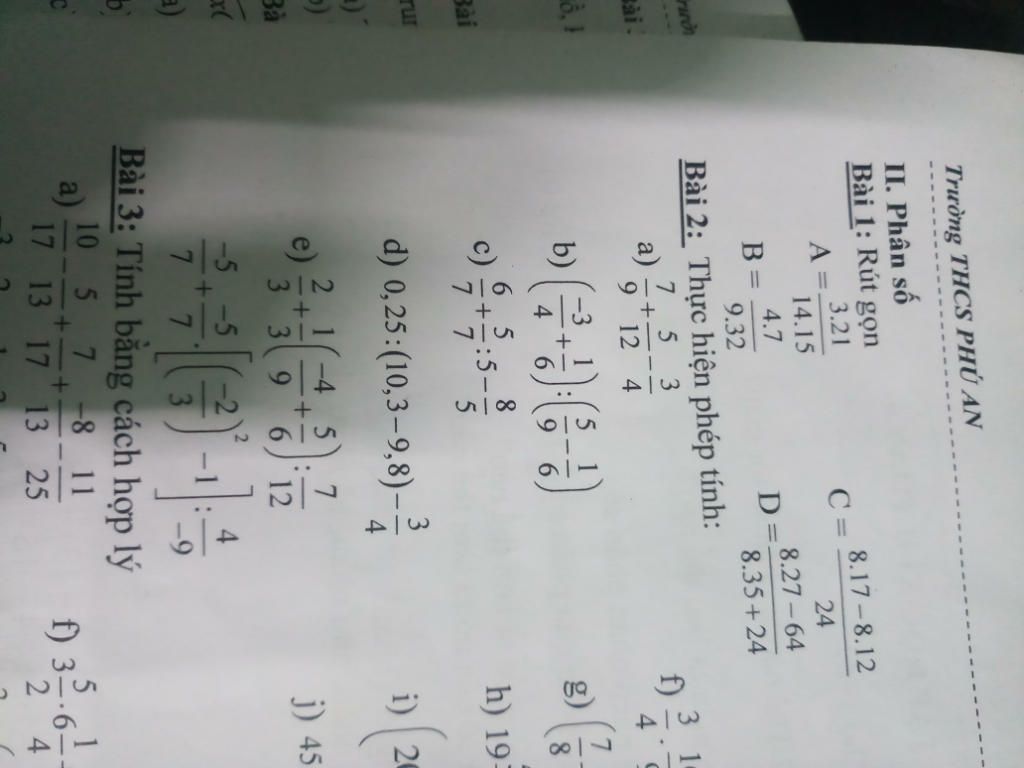 Trường THCS PHÚ AN
II. Phân số
Bài 1: Rút gọn
A = 3.21/14.15
C = (8.17 − 8.12)/24
B = 4.7/9.32
D = (8.27 − 64)/(8.35 + 24)
Bài 2: Thực hiện phép tính:
a) 7/9 + 5/12 − 3/4
f) 3/4 ·
b) (−3/4 + 1/6) : (5/9 − 1/6)
g) (7/8
c) 6/7 + 5/7 : 5 − 8/5
h) 19
d) 0,25 : (10,3 − 9,8) − 3/4
i) (
e) 2/3 + 1/3 (−4/9 + 5/6) : 7/12
j) 45
−5/7 + −5/7 · [(−2/3)² − 1] : 4/−9
Bài 3: Tính bằng cách hợp lý
a) 10/17 − 5/13 + 7/17 + −8/13 − 11/25
f) 3 5/2 · 6 1/4